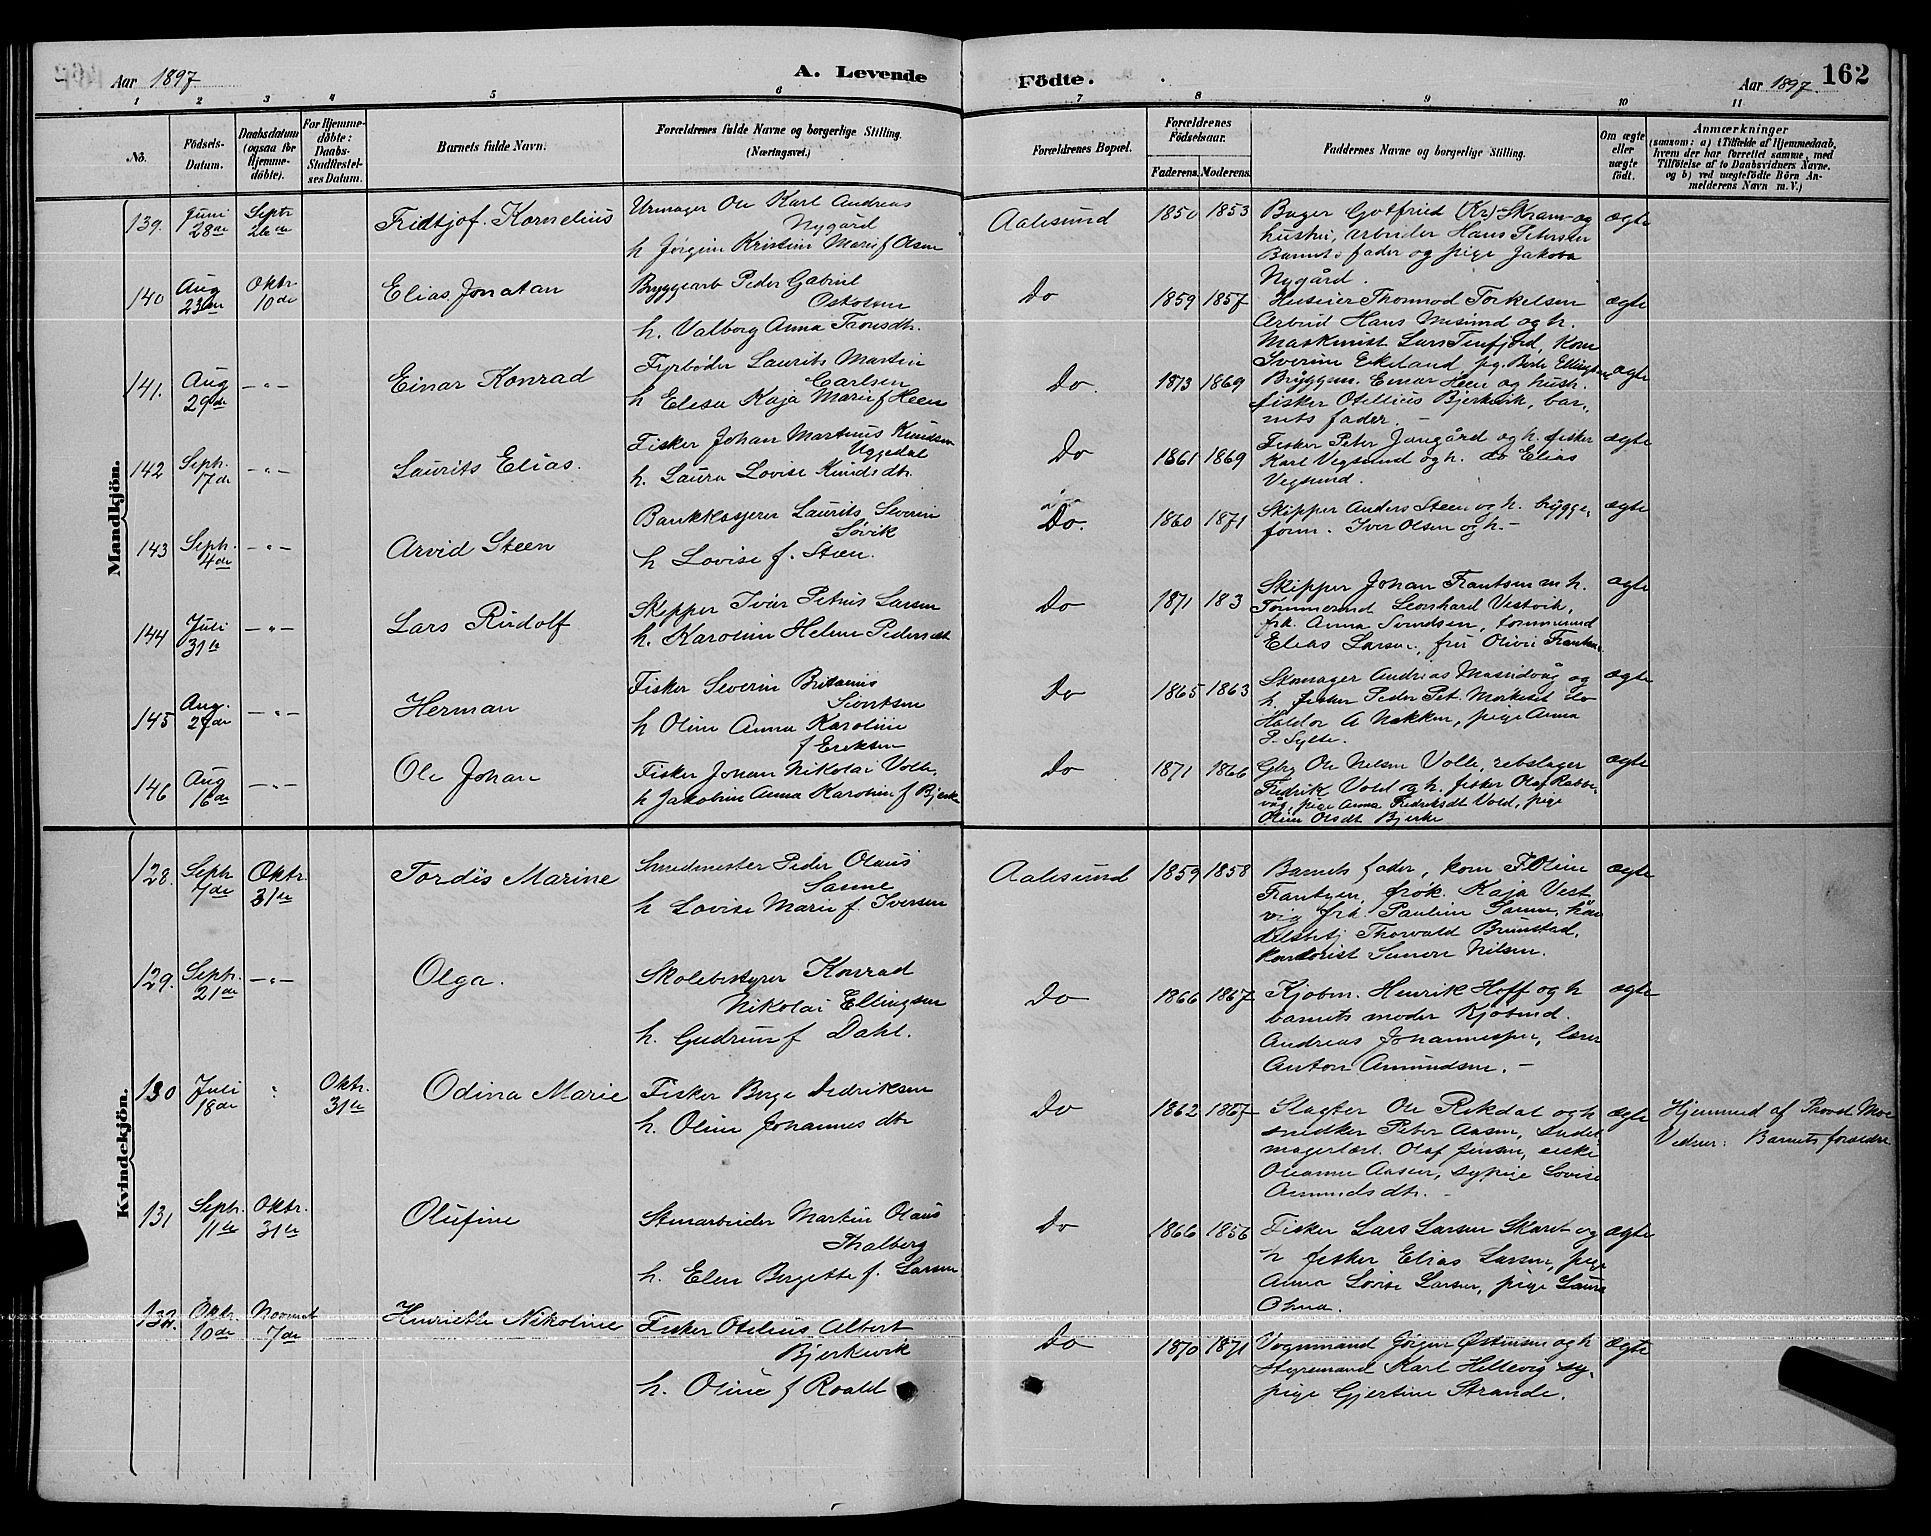 Aar 1897
A. Levende
Födte.
Aar 1897.
162
1 2 3 4 5 6 7 8 9 10 11
No.
Födsels-
Datum.
Daabsdatum
(ogsaa for
Hjemme-
döbte).
For Hjemme-
döbte:
Daabs-
Stadfæstel-
ses Datum.
Barnets fulde Navn.
Forældrenes fulde Navne og borgerlige Stilling.
(Næringsvei.)
Forældrenes Bopæl.
Forældrenes
Födselsaar.
Faderens. Moderens.
Faddernes Navne og borgerlige Stilling.
Om ægte
eller
uægte
födt.
Anmærkninger
(saasom: a) i Tilfælde af Hjemmedaab,
hvem der har forrettet samme, med
Tilföielse af to Daabsvidners Navne,
og b) ved uægtefödte Börn An-
melderens Navn m. V.)
Mandkjön.
139.
Juni
28de
Septr
26de
Fridtjof Kornelius
Urmager Ole Karl Andreas
Nygård
h Jørgine Kristine Marie f Olsen
Aalesund
1850 1853
Bager Gotfried (Kr) Skram og
hustru, arbeider Hans Petersen
Barnets fader og pige Jakoba
Nygård.
ægte
140
Aug
23de
Oktr
10de
Elias Jonatan
Bryggearb Peder Gabriel
h. Valborg Anna Tronsdtr.
Do
1859 1857
Huseier Thormod Torkelsen
Arbeid Hans Misund og h.
Maskinist Lars Tenfjord, Kone
Severine Eikeland, pg.
ægte
141.
Aug
29de
- " -
Einar Konrad
Fyrbøder Laurits Martin
Carlsen
h Elesa Kaja Marie f Heen
Do.
1873 1869
Bryggem. Einar Heen og hush.
fisker Otellius Bjerkvik, bar-
nets fader. -
ægte
142
Septr.
17de
- " -
Laurits Elias.
Fisker Johan Martinus Knudsen
Uggedal
h. Laura Lovise Knudsdtr.
Do
1861 1869
Fisker Peter Jangård og h. fisker
Karl Vegsund og h. do Elias
Vegsund.
ægte
143
Septr.
4de
- " -
Arvid Steen
Bankkasserer Laurits Severin
Søvik
h Lovise f. Steen.
Do.
1860 1871
Skipper Anders Steen og h. brygge-
form. Iver Olsen og h. -
ægte
144
Juli
31te
- " -
Lars Rudolf
Skipper Ivar Petrus Larsen
h. Karoline Helene Pedersdtr
Do
1871 183
Skipper Johan Frantsen m h.
Tømmermd Leonhard Vestvik,
frk. Anna Svendsen, tømmermd
Elias Larsen, fru Olivie Frantsen.
ægte
145
Aug.
27de
- " -
Herman
Fisker Severin Britanus
Sivertsen
h Oline Anna Karoline
f Eriksen
Do
1865 1863
Skomager Andreas Masindvåg og
h. fisker Peder Pet. Morkeset do
Haldor A Nakken, pige Anna
P. Sylte.
ægte
146
Aug
16de
- " -
Ole Johan
Fisker Johan Nikolai Volle,
h Jakobine Anna Karoline f Bjerke
Do
1871 1866
Gbr Ole Nilsen Volle, rebslager
Fredrik Vold og h. fisker Olaf Rabbe-
våg, pige Anna Fredriksdt Vold, pige
Oline Olsdt Bjerke
ægte
Kvindekjön.
128.
Septr
7de
Oktr.
31te
Tordis Marine
Smedmester Peder Olaus
Sanne
h Lovise Marie f. Iversen
Aalesund
1859 1858
Barnets fader, kone F Oline
Frantzen, frøk. Kaja Vest
vig frk. Pauline Sanne, han
delsbetj Thorvald Brunstad,
kontorist Simon Nilsen.
ægte
129.
Septr.
21de
- " -
Olga.
Skolebestyrer Konrad
Nikolai Ellingsen
h. Gudrun f Dahl.
Do
1866 1867
Kjøbm. Henrik Hoff og h
barnets moder Kjøbmd.
Andreas Johannessen, lærer
Anton Amundsen. -
ægte
130
Juli
18de
"
Oktr.
31te
Odina Marie
Fisker Berge Dedriksen
h. Oline Johannesdtr
Do
1862 1867
Slagter Ole Rekdal og h
snedker Peter Aasen,
magerlært. Olaf Jensen, enke
Oleanne Aasen, sypige Lovise
Amundsdtr. -
ægte
Hjemmed af Provst Moe
Vidner: Barnets forældre
131
Septr.
11te
Oktr.
31te
Olufine
Stenarbeider Martin Olaus
Thalberg
h. Elen Bergette f. Larsen
Do
1866 1856
Fisker Lars Larsen Skaret og
h fisker Elias Larsen, pige
Anna Lovise Larsen, pige Laura
ægte
132.
Oktr.
10de
Novembr
7de
Henriette Nikoline
Fisker Otelius Albert
Bjerkevik
h. Oline f Roald
Do
1870 1871
Vognmand Jørgen Østensen og h
styremand Karl Hellevig sy-
pige Gjertine Strande.
ægte